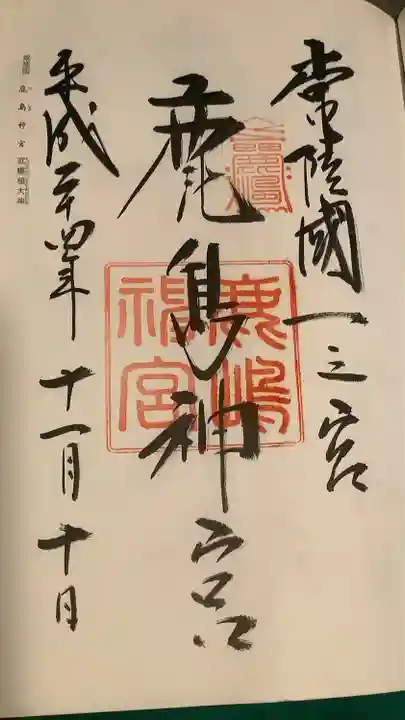 常陸國一之宮
鹿島神宮
鹿嶋神宮
平成二十四年十一月十日
鹿島神宮
武甕槌大神